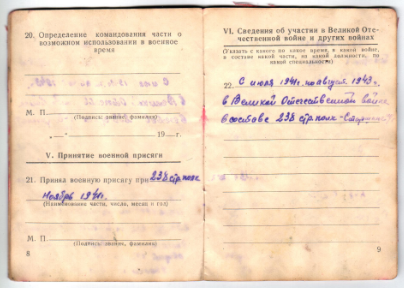 20. Определение командования части о
возможном использовании в военное
время
М. П.
(Подпись: звание, фамилия)
19 г.
V. Принятие военной присяги
21. Принял военную присягу при 235 стр полк
Ноябрь 1941г.
(Наименование части, число, месяц и год)
М. П.
(Подпись: звание, фамилия)
8
VI. Сведения об участии в Великой Оте-
чественной войне и других войнах
(Указать с какого по какое время, в какой войне,
в составе какой части, на какой должности, по
какой специальности)
22. С июля 1941г. по август 1943г.
в Великой Отечественной войне
в составе 235 стр полк
9